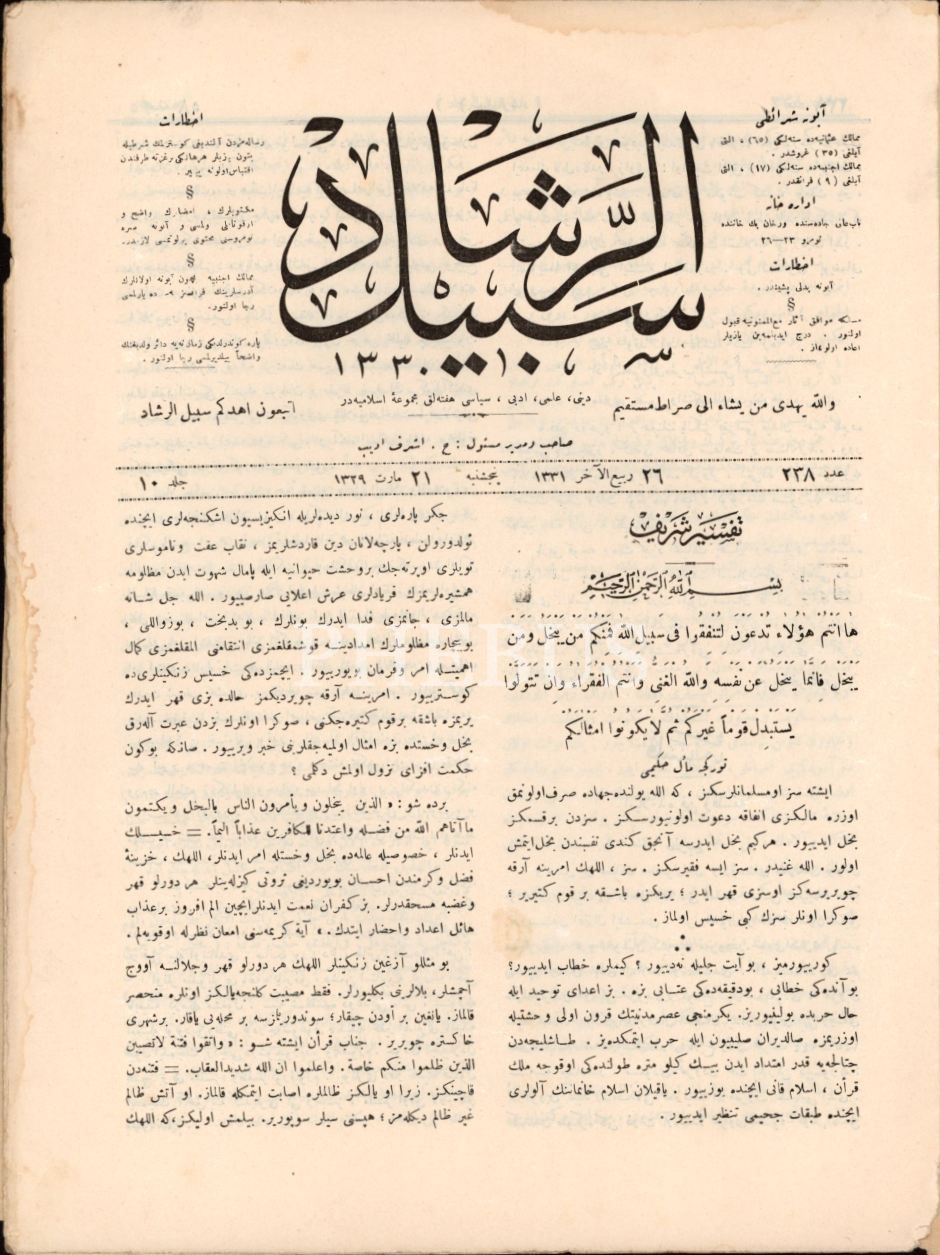 آبونه شرائطى
ممالك عثمانيه‌ده سنه‌لكى (٦٥) ، التى
آيلغى (٣٥) غروشدر .
ممالك اجنبيه‌ده سنه‌لكى (١٧) ، التى
آيلغى (٩) فرانقدر .
اداره خانه
باب‌عالى جاده‌سنده
نومرو ٢٣—٢٦
اخطارات
آبونه بدلى پشيندر .
§
مسلكه موافق آثار مع‌الممنونيه قبول
اولنور . درج ايدلمه‌ين يازيلر
اعاده اولونماز .
سبيل الرشاد
١٣٣٠
اخطارات
رساله‌مزدن آلنديغى كوسترلمك شرطيله
بتون يازيلر هرهانكى برغزته طرفندن
اقتباس اولونه بيلير .
§
مكتوبلرك ، امضالرك واضح و
اوقوناقلى ولمسى و آبونه صره
نومروسنى محتوى بولونمسى لازمدر .
§
ممالك اجنبيه ايچون آبونه اولانلرك
آدرسلرينك فرانسزجه‌ده يازلمسى
رجا اولنور .
§
پاره كوندرلديكى زمان نه‌يه دائر ولديغنك
واضحاً بيلديرلمسى رجا اولنور .
والله يهدى من يشاء الى صراط مستقيم
دينى ، علمى ، ادبى ، سياسى هفته‌لق مجموعهٔ اسلاميه‌در
اتبعون اهدكم سبيل الرشاد
صاحب ومدير مسئول : ح . اشرف اديب
عدد ٢٣٨
٢٦ ربيع الآخر ١٣٣١
پنجشنبه
٢١ مارت ١٣٢٩
جلد ١٠
تفسير شريف
بسم الله الرحمن الرحيم
ها انتم هؤلاء تدعون لتنفقوا فى سبيل الله فمنكم من يبخل ومن
يبخل فانما يبخل عن نفسه والله الغنى وانتم الفقراء وان تتولوا
يستبدل قوماً غيركم ثم لا يكونوا امثالكم
توركجه مآل حكيمى
ايشته سز اومسلمانلرسكز ، كه الله يولنده جهاده صرف اولونمق
اوزره مالكزى انفاقه دعوت اولونيورسكز . سزدن برقسمكز
بخل ايدييور . هركيم بخل ايدرسه آنجق كندى نفسندن بخل ايتمش
اولور . الله غنيدر . سز ايسه فقيرسكز . سز ، اللهك امرينه آرقه
چويررسه‌كز اوسزى قهر ايدر ؛ يريكزه باشقه بر قوم كتيرير ؛
صوكرا اونلر سزك كبى خسيس اولماز .
كورييورميز ، بوآيت جليله نه‌دييور ؟ كيملره خطاب ايدييور؟
بو آنده‌كى خطابى ، بودقيقه‌ده‌كى عتابى بزه . بز اعداى توحيد ايله
حال حربده بولنيوريز . يكرمنجى عصر مدنيتك قرون اولى وحشتيله
اوزريمزه صالديران صليبيون ايله حرب ايتمكده‌يز . طاشليجه‌دن
چتالجه‌يه قدر امتداد ايدن بيك كيلو متره طولنده‌كى اوقوجه ملك
قرآن ، اسلام قانى ايچنده يوزييور . ياقيلان اسلام خانمانك آلولرى
ايچنده طبقات جحيمى تنظير ايدييور .
جكر پاره‌لرى ، نور ديده‌لريله انكيزيسيون اشكنجه‌لرى ايچنده
ئولدورولن ، پارچه‌لانان دين قاردشلريمز ، نقاب عفت وناموسلرى
تويلرى اوپرته‌جك بروحشت حيوانيه ايله پامال شهوت ايدن مظلومه
همشيره‌لريمزك فريادلرى عرش اعلايى صارصييور . الله جل شانه
مالمزى ، جانمزى فدا ايدرك بونلرك ، بو بدبخت ، بوزواللى ،
بوبيچاره مظلوملرك امدادينه قوشمقلغمزى انتقامنى المقلغمزى كمال
اهميتله امر وفرمان بويورييور . ايچمزده‌كى خسيس زنكينلرى‌ده
كوسترييور . امرينسه آرقه چويرديكمز حالده بزى قهر ايدرك
يريمزه باشقه برقوم كتيره‌جكنى ، صوكرا اونلرك بزدن عبرت آله‌رق
بخل وخستده بزه امثال اولميه‌جقلرينى خبر ويرييور . صانكه بوكون
حكمت افزاى نزول اولمش دكلمى ؟
برده شو : « الذين يبخلون ويأمرون الناس بالبخل ويكتمون
ما آتاهم الله من فضله واعتدنا للكافرين عذاباً اليماً. = خسيسلك
ايدنلر ، خصوصيله عالمه‌ده بخل وخستله امر ايدنلر، اللهك ، خزينهٔ
فضل وكرمندن احسان بويورديغى ثروتى كيزله‌ينلر هر دورلو قهر
وغضبه مستحقدرلر. بز كفران نعمت ايدنلرايچين الم افروز برعذاب
هائل اعداد واحضار ايتدك. » آيهٔ كريمه‌سنى امعان نظرله اوقويه‌لم .
بو مثللو آزغين زنكينلر اللهك هر دورلو قهر وجلالنه آووج
آچمشلر، بلالرينى بكليورلر. فقط مصيبت كلنجه يالكز اونلره منحصر
قالماز. يانغين بر اودن چيقار؛ سوندورلمزسه بر محله‌يى ياقار. برشهرى
خاكستره چويرير . جناب قرآن ايشته شو : « واتقوا فتنة لاتصيبن
الذين ظلموا منكم خاصة. واعلموا ان الله شديدالعقاب. = فتنه‌دن
قاچينكز. زيرا او يالكز ظالملره اصابت ايتمكله قالماز. او آتش ظالم
غير ظالم ديكله‌مز؛ هپسنى سيلر سوپورير. بيلمش اوليكز، كه اللهك